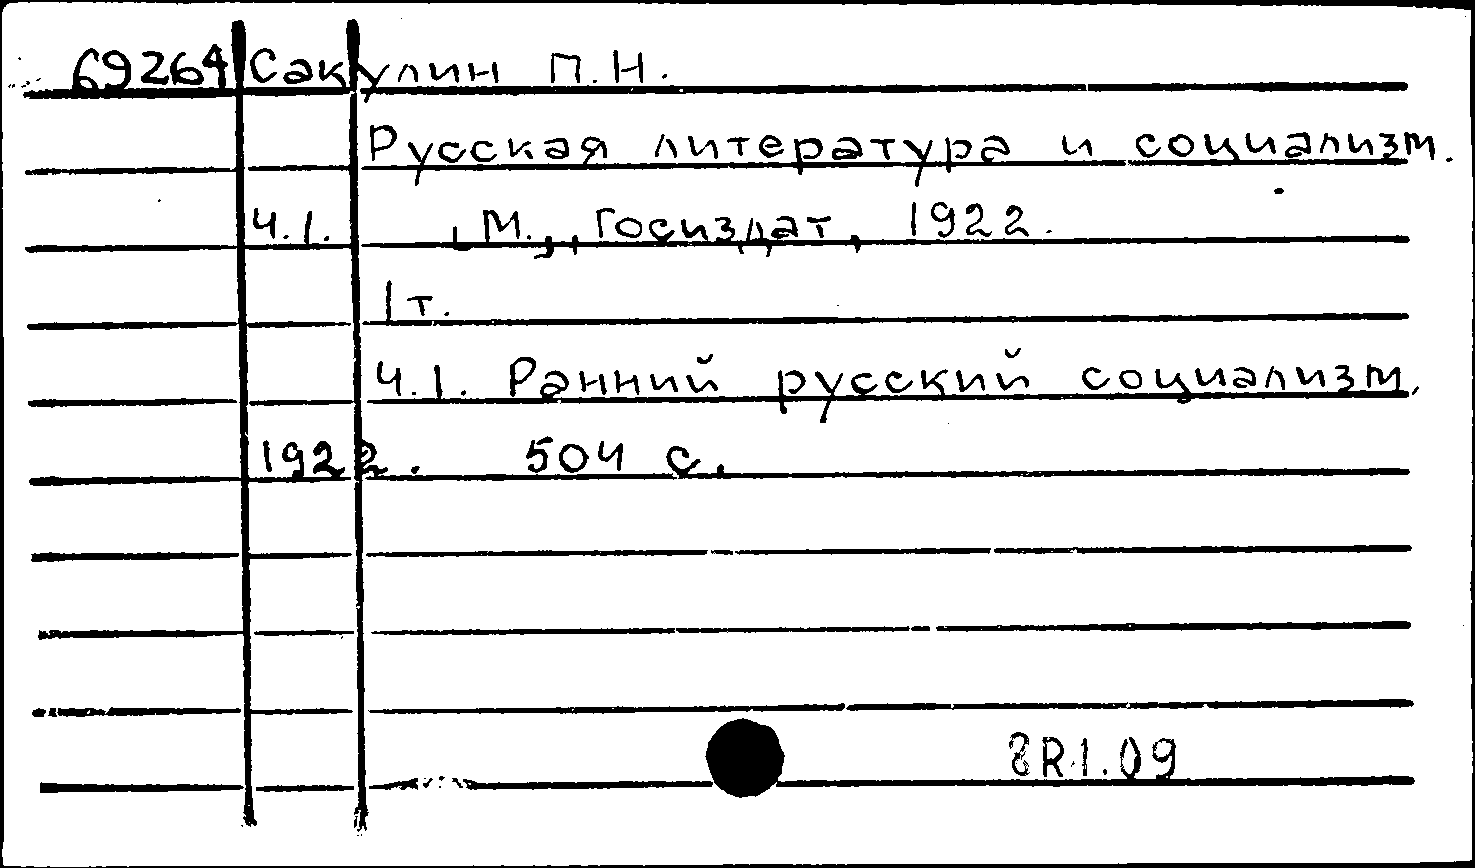 69264 Сакулин П.Н.
Русская литература и социализм.
Ч.1. , М., , Госиздат, 1922.
1 т.
Ч.1. Ранний русский социализм,
1922. 504 с.
8R1.09